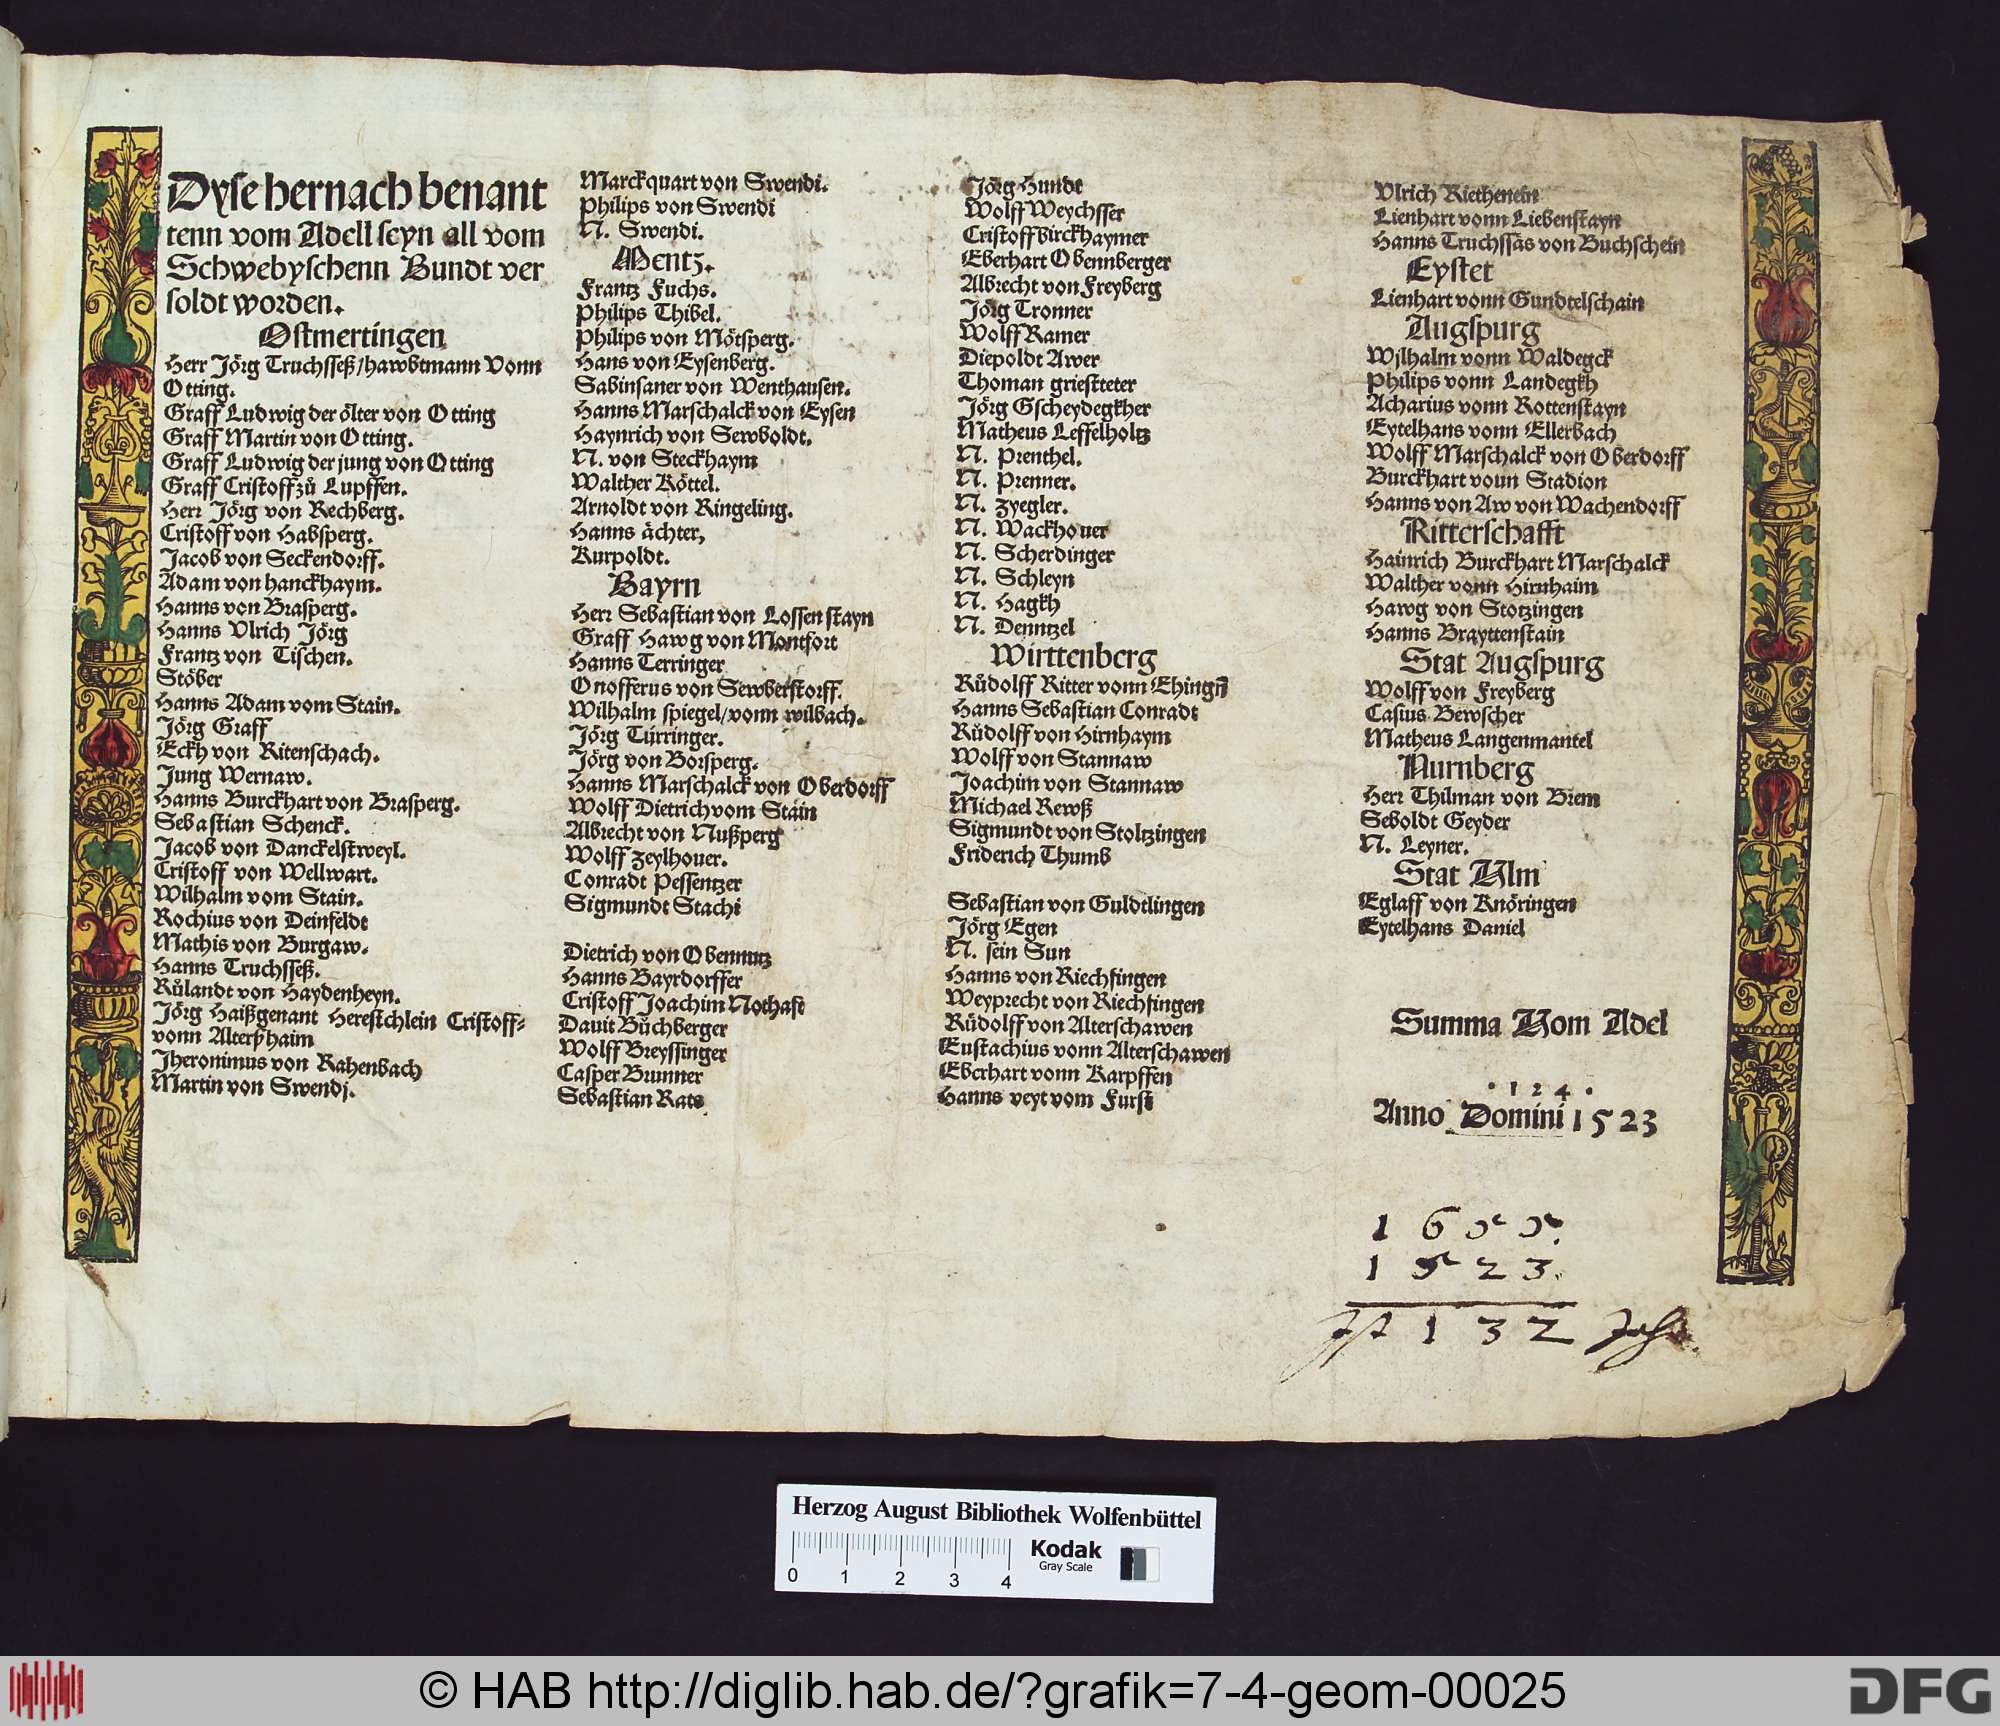 Dyse hernach benant
tenn vom Adell seyn all vom
Schwebyschenn Bundt ver
soldt worden.
Ostmertingen
Herr Jörg Truchsseß/hawbtmann Vonn
Otting.
Graff Ludwig der ölter von Otting
Graff Martin von Otting.
Graff Ludwig der jung von Otting
Graff Cristoff zů Lupffen.
Herr Jörg von Rechberg.
Cristoff von Habsperg.
Jacob von Seckendorff.
Adam von hanckhaym.
Hanns von Brasperg.
Hanns Vlrich Jörg
Frantz von Tischen.
Stöber
Hanns Adam vom Stain.
Jörg Graff
Eckh von Ritenschach.
Jung Wernaw.
Hanns Burckhart von Brasperg.
Sebastian Schenck.
Jacob von Danckelstweyl.
Cristoff von Wellwart.
Wilhalm vom Stain.
Rochius von Deinfeldt
Mathis von Burgaw.
Hanns Truchsseß.
Růlandt von Haydenheyn.
Jörg Haißgenant Herestchlein Cristoff-
vonn Alterßhaim
Jheronimus von Rahenbach
Martin von Swendi.
Marckquart von Swendi.
Philips von Swendi
N. Swendi.
Mentz.
Frantz Fuchs.
Philips Thibel.
Philips von Mötsperg.
Hans von Eysenberg.
Sabinsaner von Wenthausen.
Hanns Marschalck von Eysen
Haynrich von Sewboldt.
N. von Steckhaym
Walther Köttel.
Arnoldt von Ringeling.
Hanns ächter,
Kurpoldt.
Bayrn
Herr Sebastian von Lossenstayn
Graff Hawg von Montfort
Hanns Terringer
Onofferus von Sewberstorff.
Wilhalm spiegel/vonn wilbach.
Jörg Türringer.
Jörg von Borsperg.
Hanns Marschalck von Oberdorff
Wolff Dietrich vom Stain
Albrecht von Nußperg
Wolff zeylhouer.
Conradt Pessentzer
Sigmundt Stachi
Dietrich von Obennutz
Hanns Bayrdorffer
Cristoff Joachim Nothaft
Dauit Bůchberger
Wolff Breyssinger
Casper Brunner
Sebastian Rats
Jörg Hundt
Wolff Weychsser
Cristoff birckhaymer
Eberhart Obennberger
Albrecht von Freyberg
Jörg Tronner
Wolff Ramer
Diepoldt Awer
Thoman griestteter
Jörg Gscheydegkher
Matheus Leffelholtz
N. Prenthel.
N. Prenner.
N. zyegler.
N. Wackhouer
N. Scherdinger
N. Schleyn
N. Hagkh
N. Denntzel
Wirttenberg
Růdolff Ritter vonn Ehingn̄
Hanns Sebastian Conradt
Růdolff von Hirnhaym
Wolff von Stannaw
Joachim von Stannaw
Michael Rewß
Sigmundt von Stoltzingen
Friderich Thumb
Sebastian von Guldtlingen
Jörg Egen
N. sein Sun
Hanns von Riechfingen
Weyprecht von Riechfingen
Růdolff von Alterschawen
Eustachius vonn Alterschawen
Eberhart vonn Karpffen
Hanns veyt vom Furst
Vlrich Riethenein
Lienhart vonn Liebenstayn
Hanns Truchssäs von Buchschein
Eystet
Lienhart vonn Gundtelschain
Augspurg
Wilhalm vonn Waldegck
Philips vonn Landegkh
Acharius vonn Rottenstayn
Eytelhans vonn Ellerbach
Wolff Marschalck von Oberdorff
Burckhart voun Stadion
Hanns von Aw von Wachendorff
Ritterschafft
Hainrich Burckhart Marschalck
Walther vonn Hirnhaim
Hawg von Stotzingen
Hanns Brayttenstain
Stat Augspurg
Wolff von Freyberg
Casius Bewscher
Matheus Langenmantel
Nurnberg
Herr Thilman von Brem
Seboldt Geyder
N. Leyner.
Stat Ulm
Eglaff von Knöringen
Eytelhans Daniel
Summa Vom Adel
. 1 2 4 .
Anno Domini 1523
1 6 5 5.
1 5 2 3.
Ist 1 3 2 Jahr.
Herzog August Bibliothek Wolfenbüttel
0 1 2 3 4
Kodak
Gray Scale
© HAB http://diglib.hab.de/?grafik=7-4-geom-00025
DFG